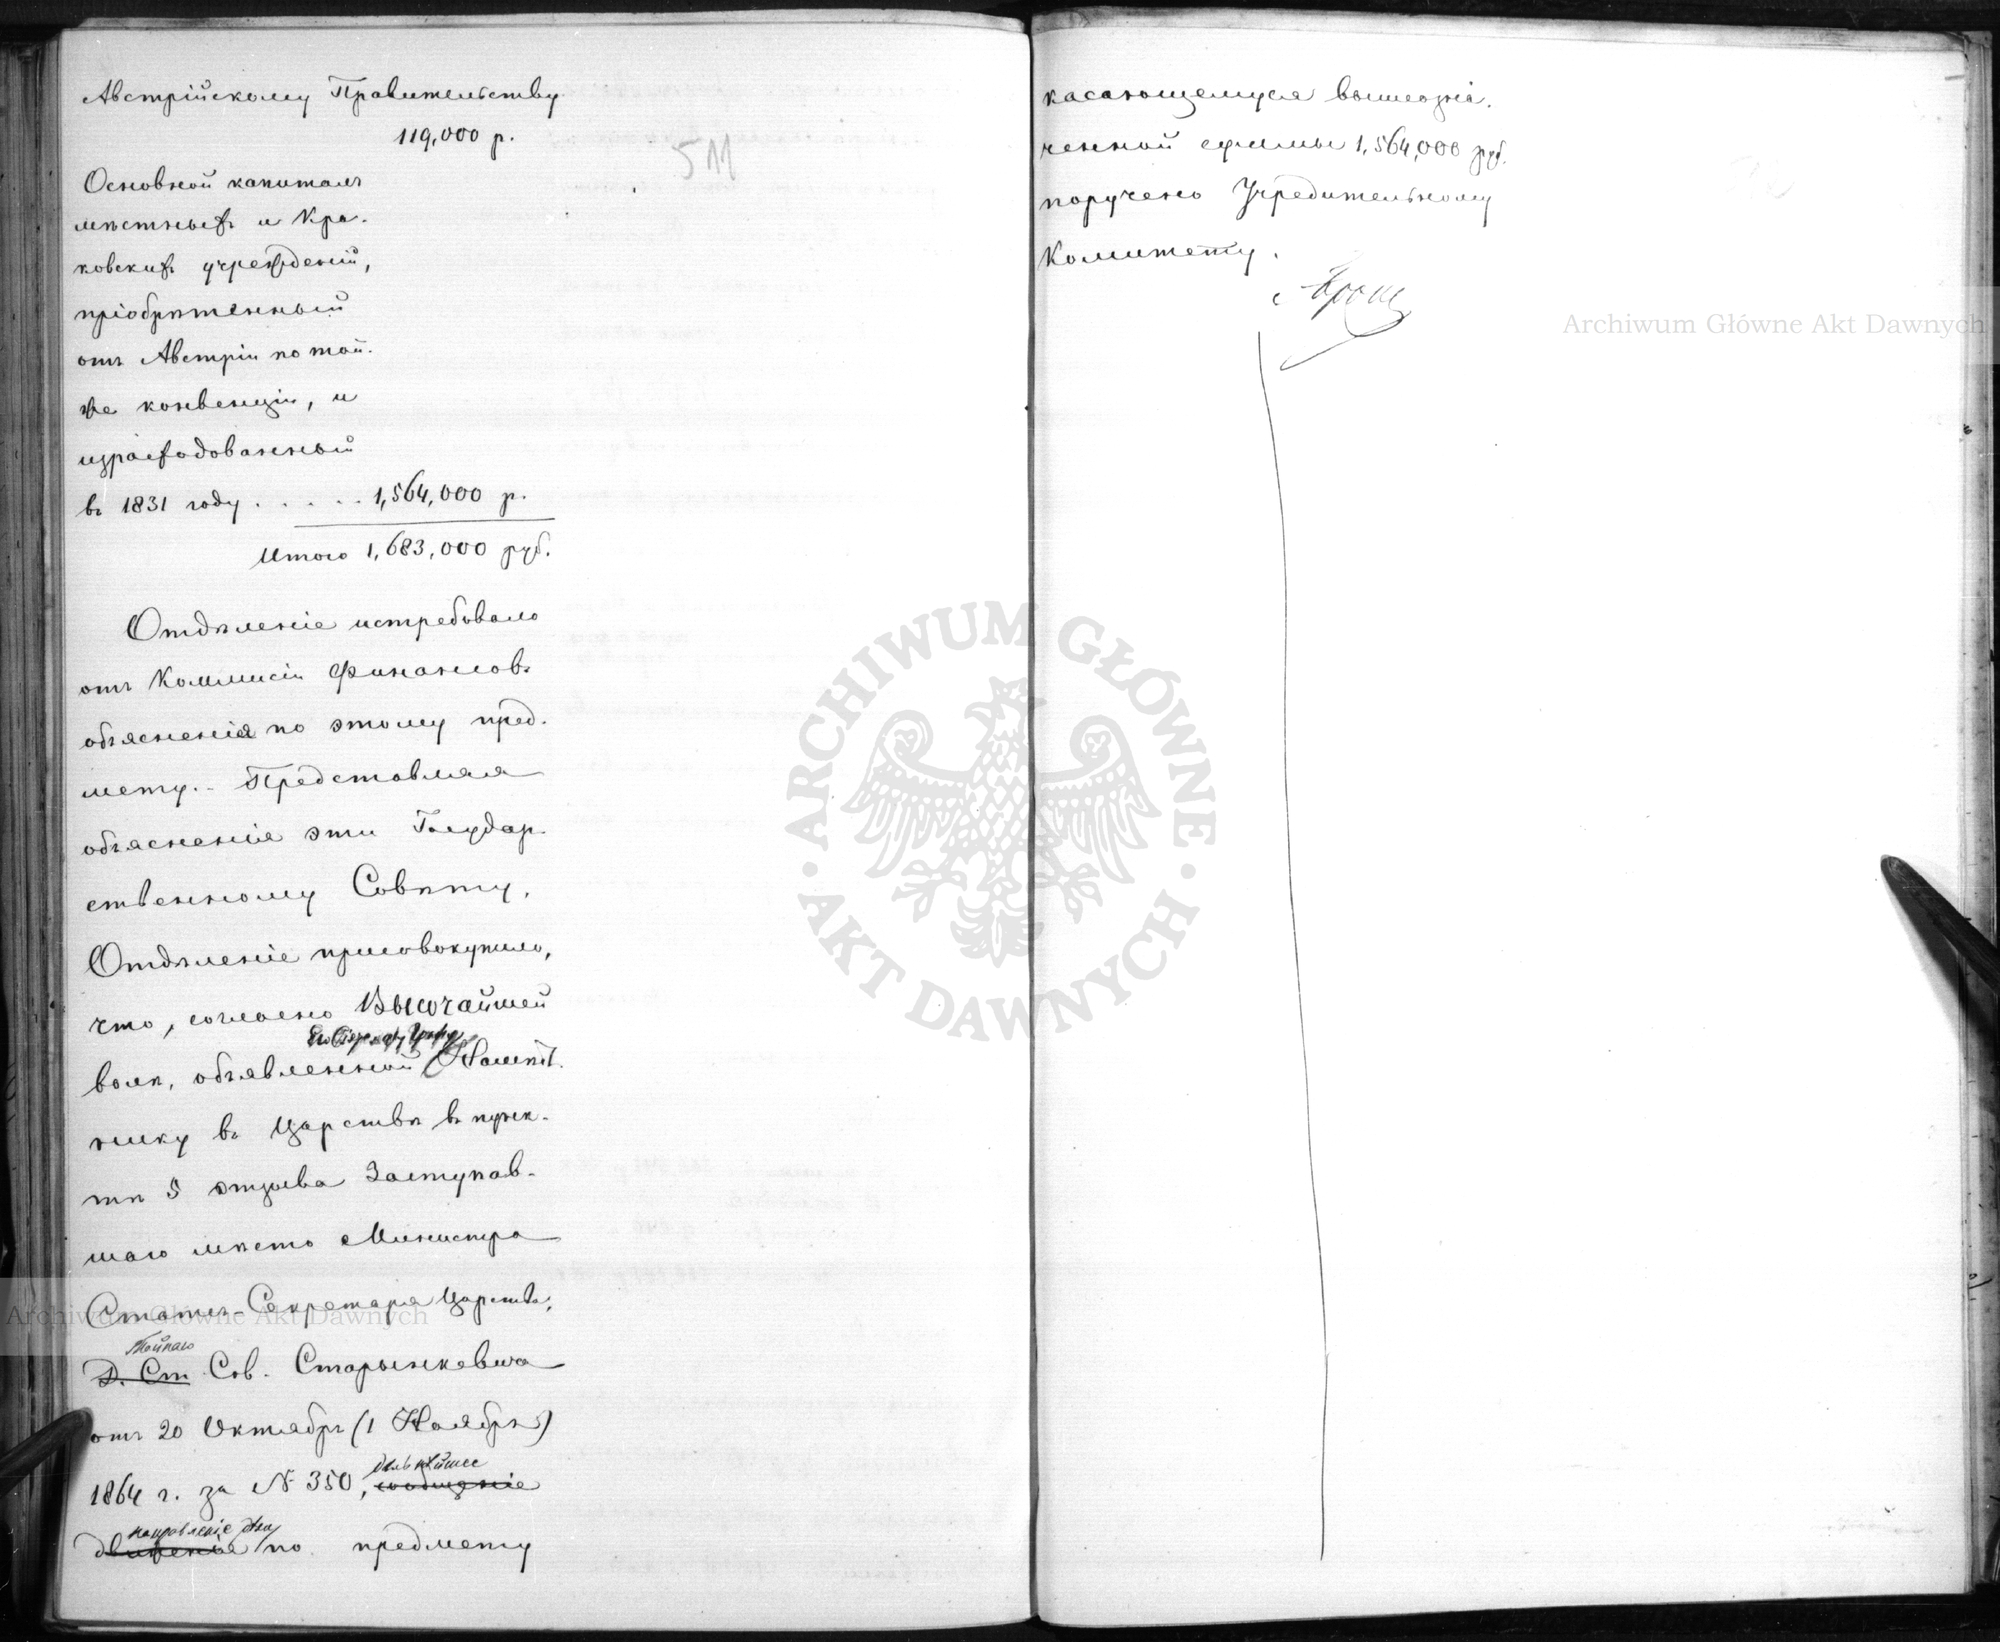 Австрійскому Правительству
119,000 р.
511
Основной капиталъ
мѣстныхъ и Кра-
ковскихъ учрежденій,
пріобрѣтенный
отъ Австріи по той-
же конвенціи, и
израсходованный
въ 1831 году . . . . . 1,564,000 р.
Итого 1,683,000 руб.
Отдѣленіе истребовало
отъ Коммисіи Финансовъ
объясненія по этому пред-
мету. - Представляя
объясненія эти Государ-
ственному Совѣту,
Отдѣленіе присовокупило,
что, согласно Высочайшей
волѣ, объявленной Намѣст-
нику въ Царствѣ въ пунк-
тѣ 5 отзыва Заступав-
шаго мѣсто Министра
Статсъ-Секретаря Царства,
Тайнаго
Д. Ст. Сов. Старынкевича
отъ 20 Октября (1 Ноября)
дальнѣйшее
1864 г. за № 350, сообщеніе
направленіе дѣла
движенія по предмету
касающемуся вышеозна-
ченной суммы 1,564,000 руб.
поручено Учредительному
Комитету.
Archiwum Główne Akt Dawnych
ARCHIWUM GŁÓWNE · AKT DAWNYCH ·
Archiwum Główne Akt Dawnych